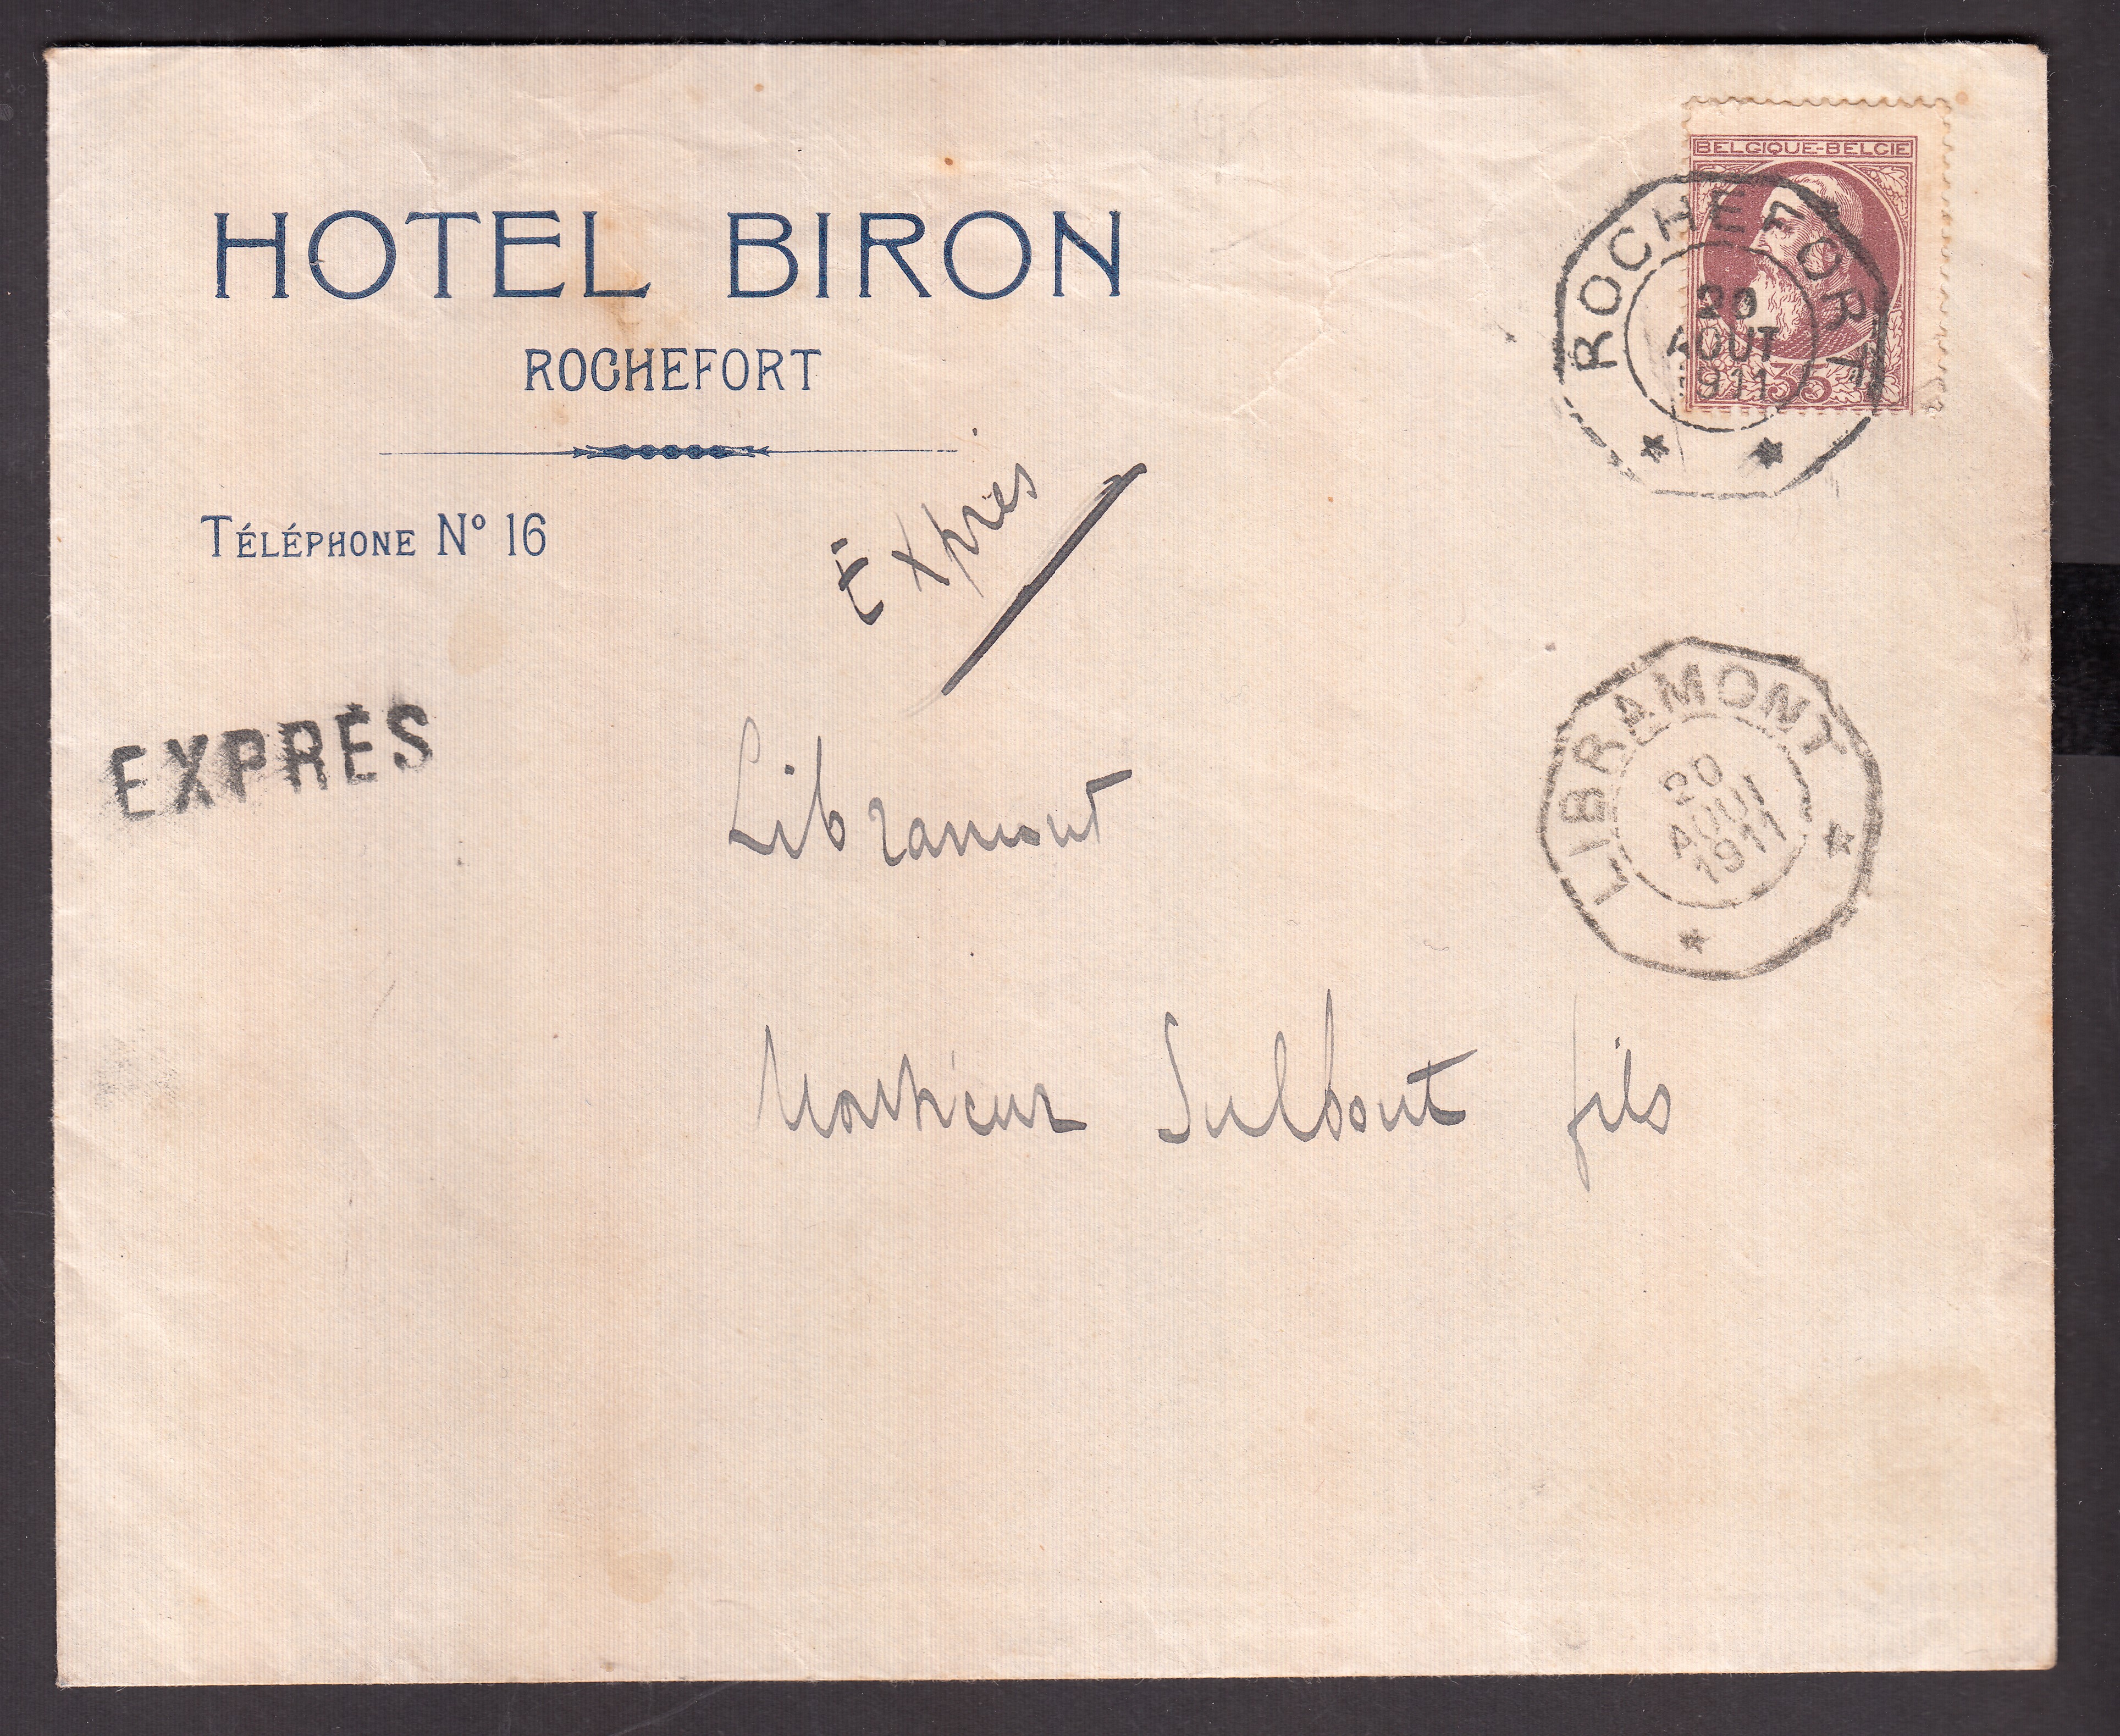 HOTEL BIRON
ROCHEFORT
TÉLÉPHONE Nº 16
BELGIQUE-BELGIE
35
ROCHEFORT
20
AOUT
1911
Exprès
EXPRÈS
LIBRAMONT
20
AOUT
1911
Libramont
Monsieur Sulbout fils